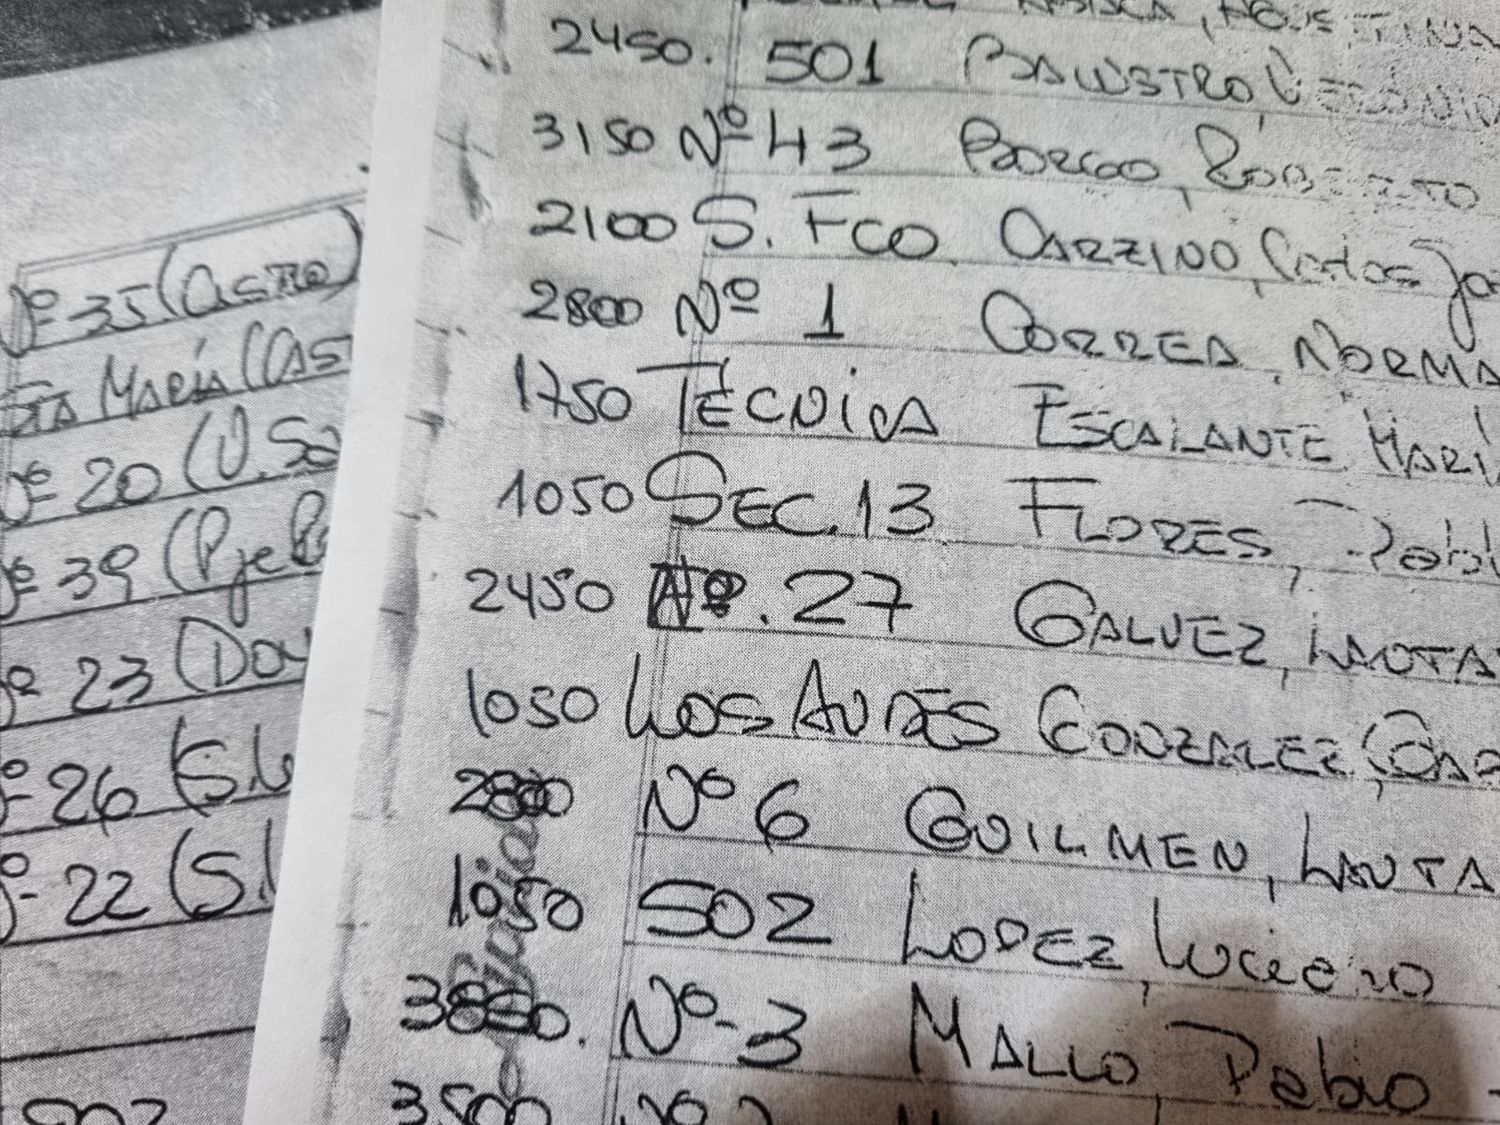 2450. 501 BALLESTRO, VERÓNICA
3150 Nº 43 BORGGO, ROBERTO
2100 S. FCO. CARZINO, Carlos
2800 Nº 1 CORREA, NORMA
1750 TÉCNICA ESCALANTE, MARÍ
1050 SEC. 13 FLORES, Pabl
2450 Nº. 27 GALVEZ, LAUTA
1050 LOS ANDES GONZALEZ,
2800 Nº 6 GUILMEN, LAUTA
1050 502 LOPEZ, Luciano
Nº 3 MALLO, Pablo
3500
Nº 35 (CASTRO)
STA MARÍA (CAST
Nº 20 (V. Sa
Nº 39 (Pje
Nº 23 (Do
Nº 26 (S.L
Nº 22 (S.L